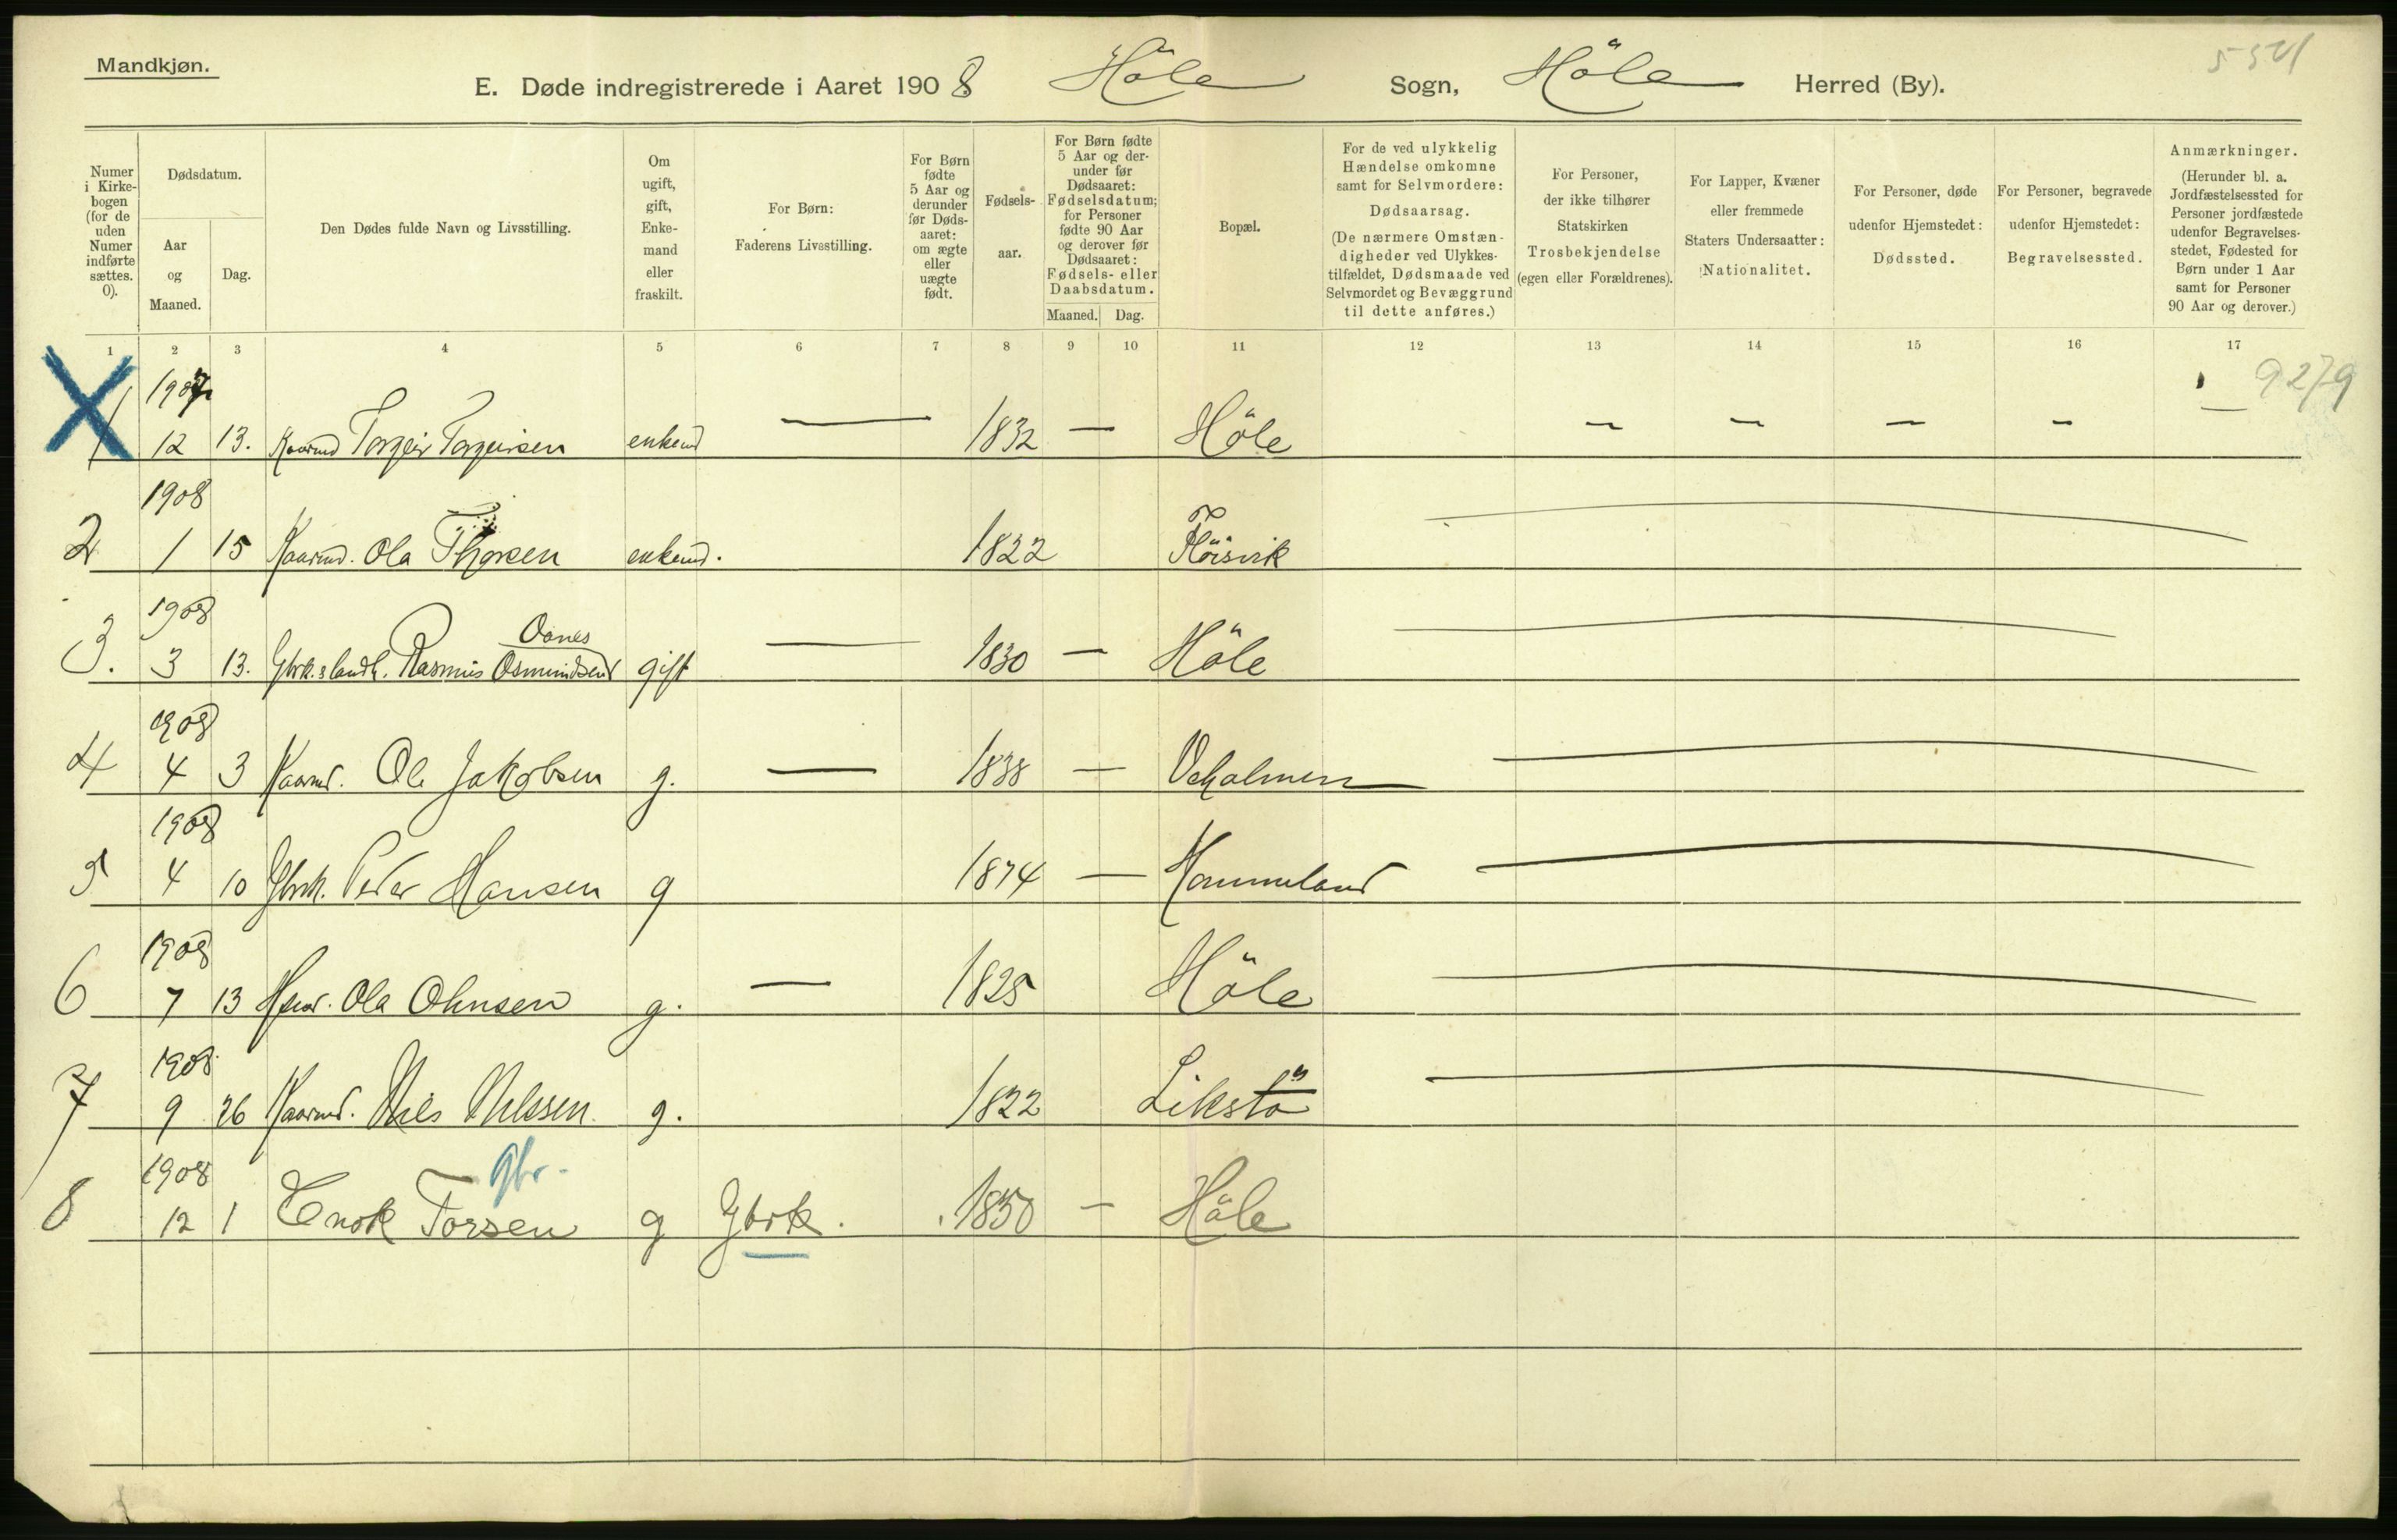 Mandkjøn.
E. Døde indregistrerede i Aaret 1908 Höle Sogn, Höle Herred (By).
5541
Numer i Kirke-bogen (for de uden Numer indførte sættes. 0).
Dødsdatum.
Aar og Maaned.
Dag.
Den Dødes fulde Navn og Livsstilling.
Om ugift, gift, Enke-mand eller fraskilt.
For Børn: Faderens Livsstilling.
For Børn fødte 5 Aar og derunder før Døds-aaret: om ægte eller uægte født.
Fødsels-aar.
For Børn fødte 5 Aar og der-under før Dødsaaret: Fødselsdatum; for Personer fødte 90 Aar og derover før Dødsaaret: Fødsels- eller Daabsdatum.
Maaned. Dag.
Bopæl.
For de ved ulykkelig Hændelse omkomne samt for Selvmordere: Dødsaarsag. (De nærmere Omstæn-digheder ved Ulykkes-tilfældet, Dødsmaade ved Selvmordet og Bevæggrund til dette anføres.)
For Personer, der ikke tilhører Statskirken Trosbekjendelse (egen eller Forældrenes).
For Lapper, Kvæner eller fremmede Staters Undersaatter: Nationalitet.
For Personer, døde udenfor Hjemstedet: Dødssted.
For Personer, begravede udenfor Hjemstedet: Begravelsessted.
Anmærkninger. (Herunder bl. a. Jordfæstelsessted for Personer jordfæstede udenfor Begravelses-stedet, Fødested for Børn under 1 Aar samt for Personer 90 Aar og derover.)
1 2 3 4 5 6 7 8 9 10 11 12 13 14 15 16 17
1907 9279
1 12 13. Kaarmd Torgeir Torgeirsen enkemd — 1832 — Höle — — — — —
1908
2 1 15 Kaarmd. Ola Thorsen enkemd. 1822 Flöisvik
1908 Oanes
3. 3 13. Gbrk. & landh. Rasmus Osmundsen gift — 1830 — Höle
1908
4 4 3 Kaarmd. Ole Jakobsen g. — 1838 — Veholmen
1908
5 4 10 Gbrk. Peder Hansen g 1874 — Hommeland
1908
6 7 13 Hsmd. Ola Olausen g. — 1825 Höle
1908.
7 9 26 Kaarmd. Nils Nilssen. g. 1822 Likstö
1908 Gbr.
8 12 1 Enok Torsen g Gbrk. 1850 — Höle